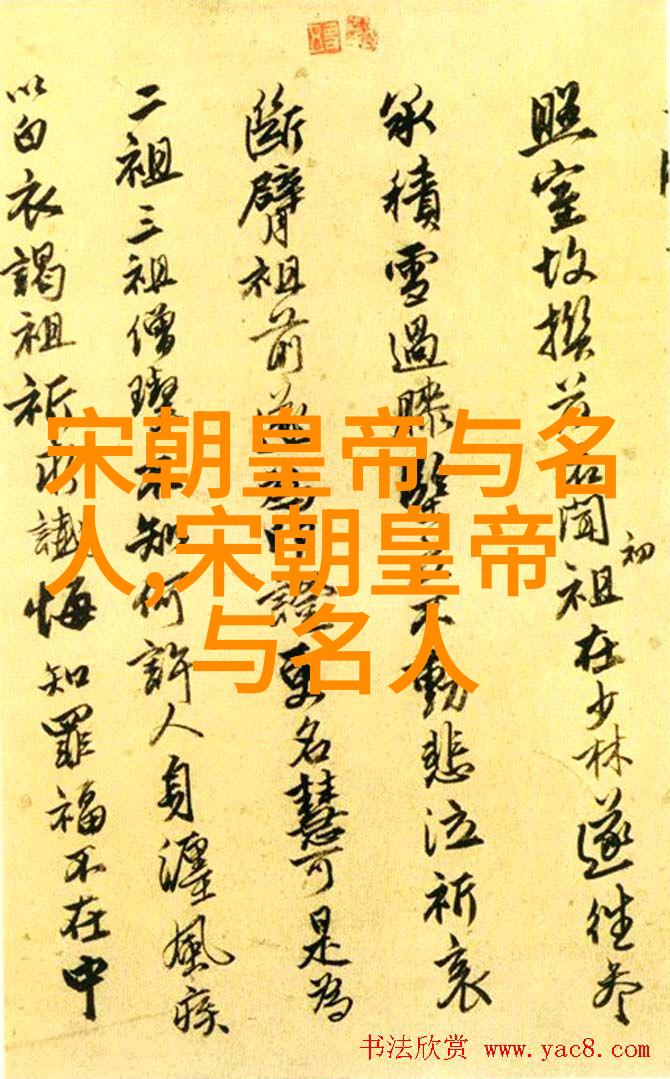 照室故撰前名聞祖在少林遂往參
初
承積雪過膝堅立不動悲泣祈哀
斷臂祖前
更名慧可是為
二祖三祖僧璨不知何許人身纏風疾
以白衣謁祖祈求懺悔知罪福不在中
宋朝皇帝与名
人,宋朝皇帝
与名人
书法欣赏 www.yac8.com